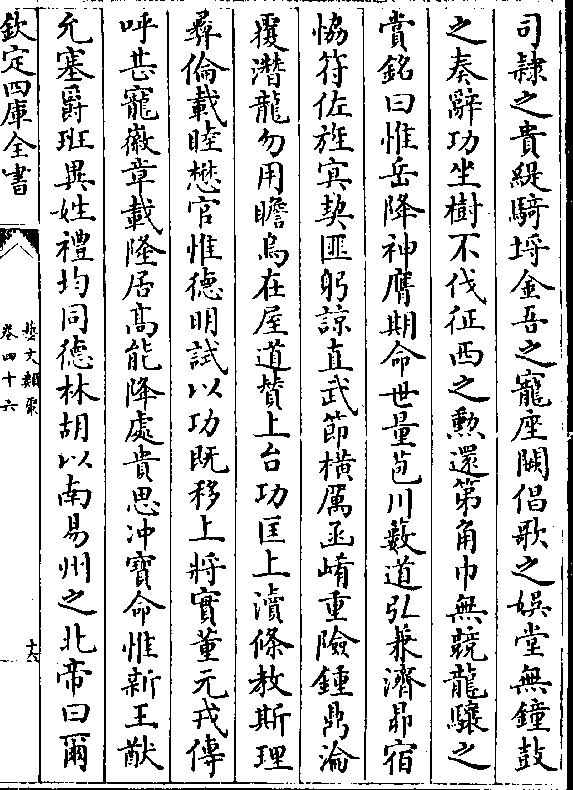 司隷之貴緹騎埒金吾之寵座闕倡歌之娯堂無鐘鼓
之奏辭功坐樹不伐征西之勲還第角巾無競龍驤之
賞銘曰惟岳降神膺期命世量苞川藪道弘兼濟昴宿
恊符佐旌㝠契匪躬諒直武節横厲函崤重險鍾鼎淪
覆潛龍勿用瞻烏在屋道賛上台功匡上瀆條教斯理
彛倫載睦懋官惟德明試以功既移上將實董元戎傳
呼甚寵徽章載隆居髙能降處貴思冲寶命惟新王猷
允塞爵班異姓禮均同德林胡以南易州之北帝曰爾
欽定四庫全書
藝文類聚
卷四十六